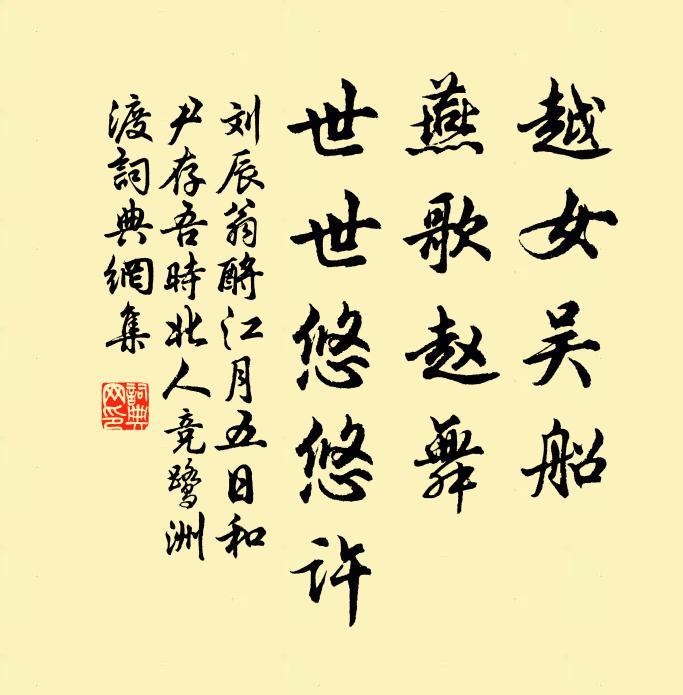 越女吴船
燕歌赵舞
世世悠悠许
刘辰翁酹江月五日和
尹存吾時北人竞鹭洲
渡詞典網集
詞典
网印